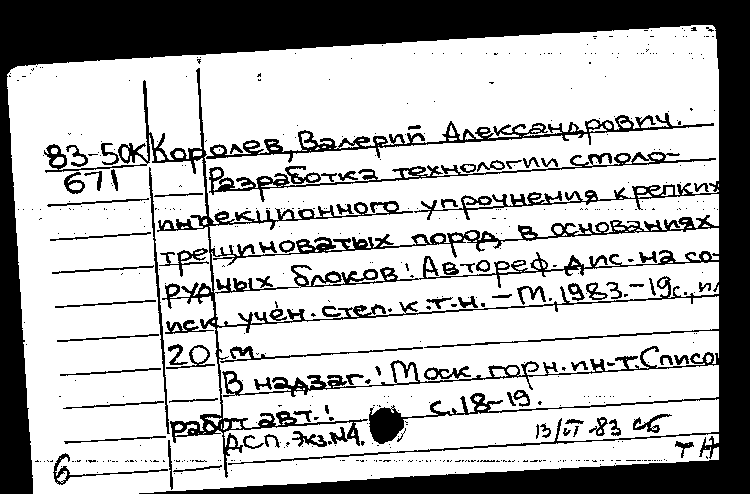 83-50К Королев, Валерий Александрович.
671 Разработка технологии смоло-
инъекционного упрочнения крепких
трещиноватых пород в основаниях
рудных блоков: Автореф. дис. на со-
иск. учён. степ. к.т.н. – М., 1983. – 19с.,
20 см.
В надзаг.: Моск. горн. ин-т. Список
работ авт.: с. 18-19.
ДСП. Экз. №4.
83
6 ТН